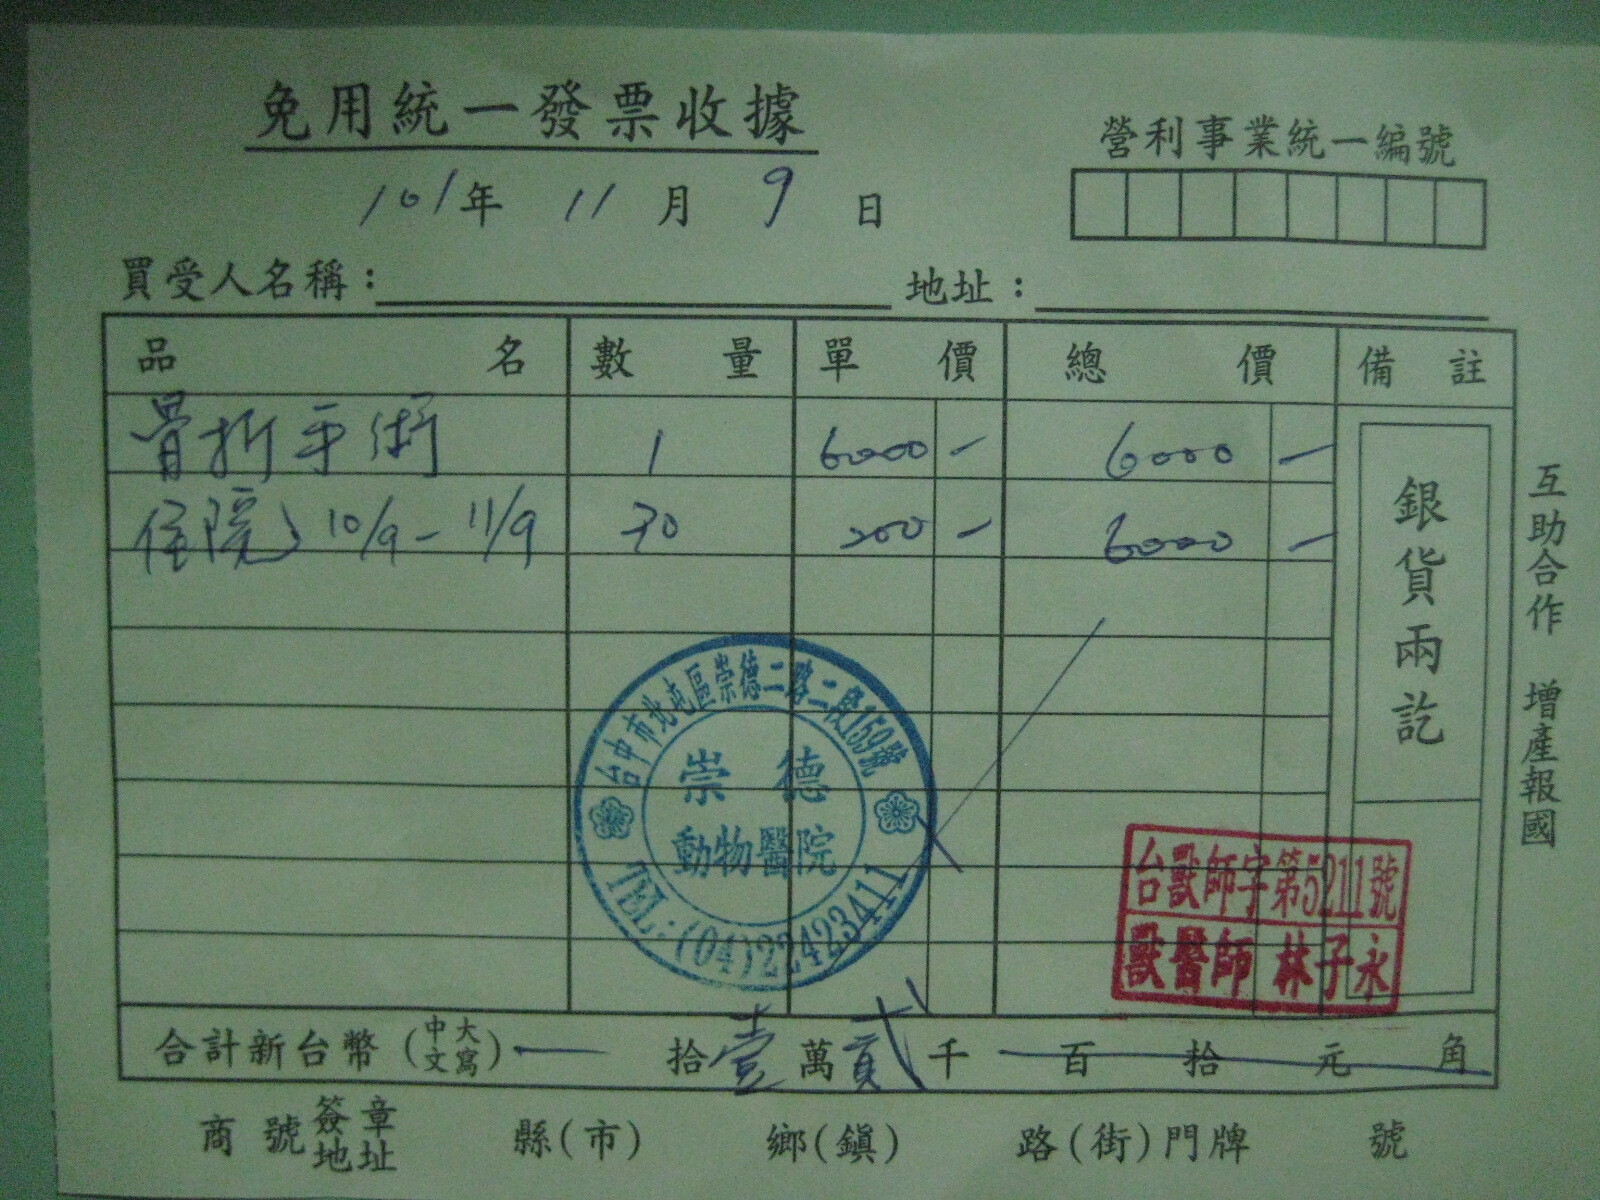 免用統一發票收據
營利事業統一編號
101年 11月 9日
買受人名稱： 地址：
品名 數量 單價 總價 備註
骨折手術 1 6000 - 6000 -
住院 10/9 - 11/9 30 200 - 6000 -
銀貨兩訖
互助合作 增產報國
台中市北屯區崇德二路二段159號
崇德
動物醫院
TEL:(04)22423411
台獸師字第5211號
獸醫師 林子永
合計新台幣(中文大寫) 拾壹萬貳千 百 拾 元 角
商號簽章地址 縣(市) 鄉(鎮) 路(街)門牌 號